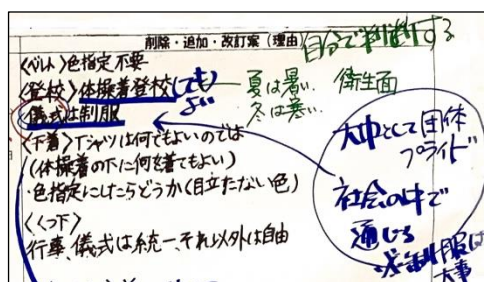 削除・追加・改訂案（理由）
自分で判断する
〈ベルト〉色指定不要
〈登校〉体操着登校してもよい
儀式は制服
夏は暑い
冬は寒い
衛生面
〈下着〉Tシャツは何でもよいのでは
（体操着の下に何を着てもよい）
・色指定にしたらどうか（目立たない色）
〈くつ下〉
行事、儀式は統一、それ以外は自由
大中として団体
プライド
社会の中で
通じる
制服は
大事